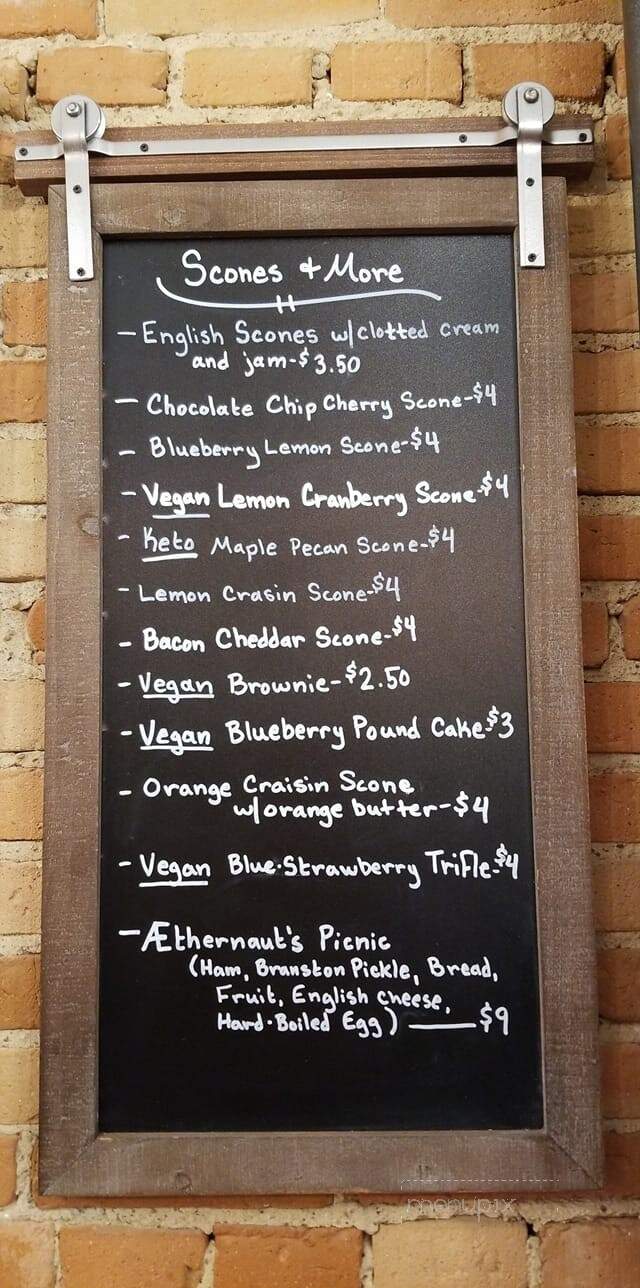 Scones & More
- English Scones w/clotted cream
and jam-$3.50
- Chocolate Chip Cherry Scone-$4
- Blueberry Lemon Scone-$4
- Vegan Lemon Cranberry Scone-$4
- Keto Maple Pecan Scone-$4
- Lemon Crasin Scone-$4
- Bacon Cheddar Scone-$4
- Vegan Brownie-$2.50
- Vegan Blueberry Pound Cake-$3
- Orange Craisin Scone
w/orange butter-$4
- Vegan Blue-Strawberry Trifle-$4
- Æthernaut's Picnic
(Ham, Branston Pickle, Bread,
Fruit, English cheese,
Hard-Boiled Egg) — $9
menupix